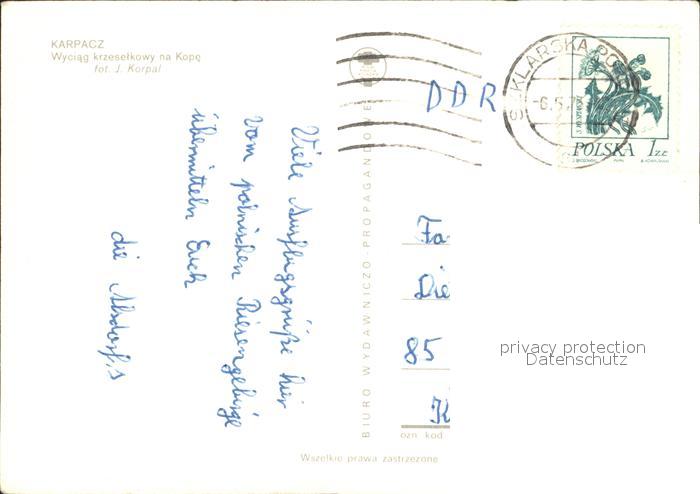 KARPACZ
Wyciąg krzesełkowy na Kopę
fot. J. Korpal
Viele Ausflugsgrüße hier
vom polnischen Riesengebirge
übermitteln Euch
die Alsdorf's
BIURO WYDAWNICZO-PROPAGANDOWE
SZKLARSKA PO
-6.5.7
POLSKA 1 ZŁ
DDR
Fa
Die
85
K
ozn kod
privacy protection
Datenschutz
Wszelkie prawa zastrzeżone